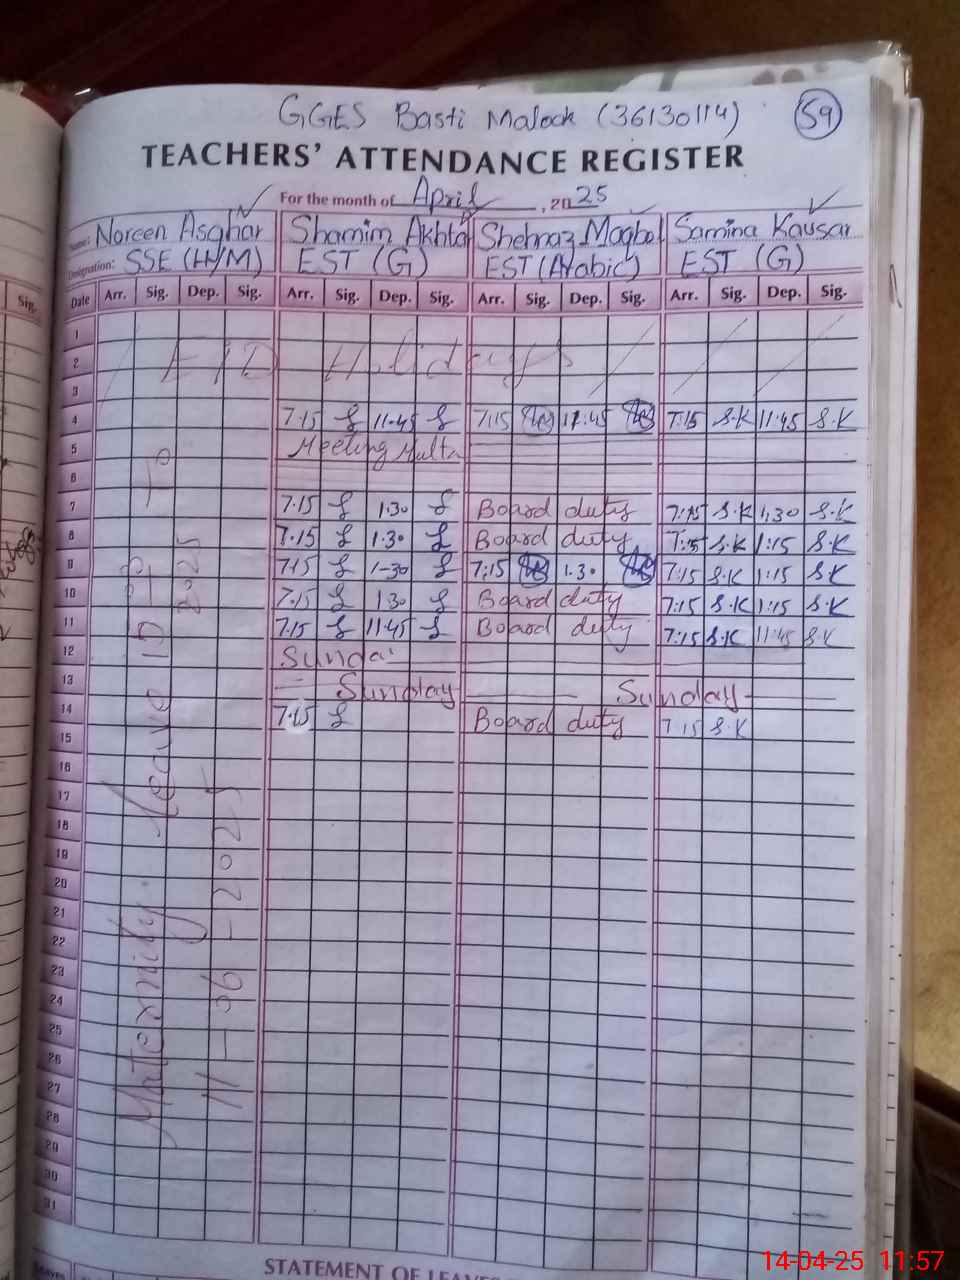 GGES Basti Malook (36130114) 59
TEACHERS' ATTENDANCE REGISTER
For the month of April, 2025
Name: Noreen Asghar Shamim Akhtar Shehnaz Maqbol Samina Kausar
Designation: SSE (H/M) EST (G) EST (Arabic) EST (G)
Sig. Date Arr. Sig. Dep. Sig. Arr. Sig. Dep. Sig. Arr. Sig. Dep. Sig. Arr. Sig. Dep. Sig.
1
2 EID Holidays
3
4 7.15 11.45 7:15 11:45 7:15 S.K 11:45 S.K
5 Meeting Multn
6
7 7.15 1.30 Board duty 7:15 S.K 1:30 S.K
8 7.15 1.30 Board duty 7:15 S.K 1:15 S.K
9 7.15 1-30 7:15 1.30 7:15 S.K 1:15 S.K
10 7.15 1.30 Board duty 7:15 S.K 1:15 S.K
11 7.15 11.45 Board duty 7:15 S.K 11:45 S.K
12 Sunda
13 Sunday Sunday
14 7.15 Board duty 7:15 S.K
15
16
17
18
19
20
21
22
23
24
25
26
27
28
29
30
31
Maternity Leave To
2025
11-06-2025
STATEMENT OF LEAVES
14-04-25 11:57